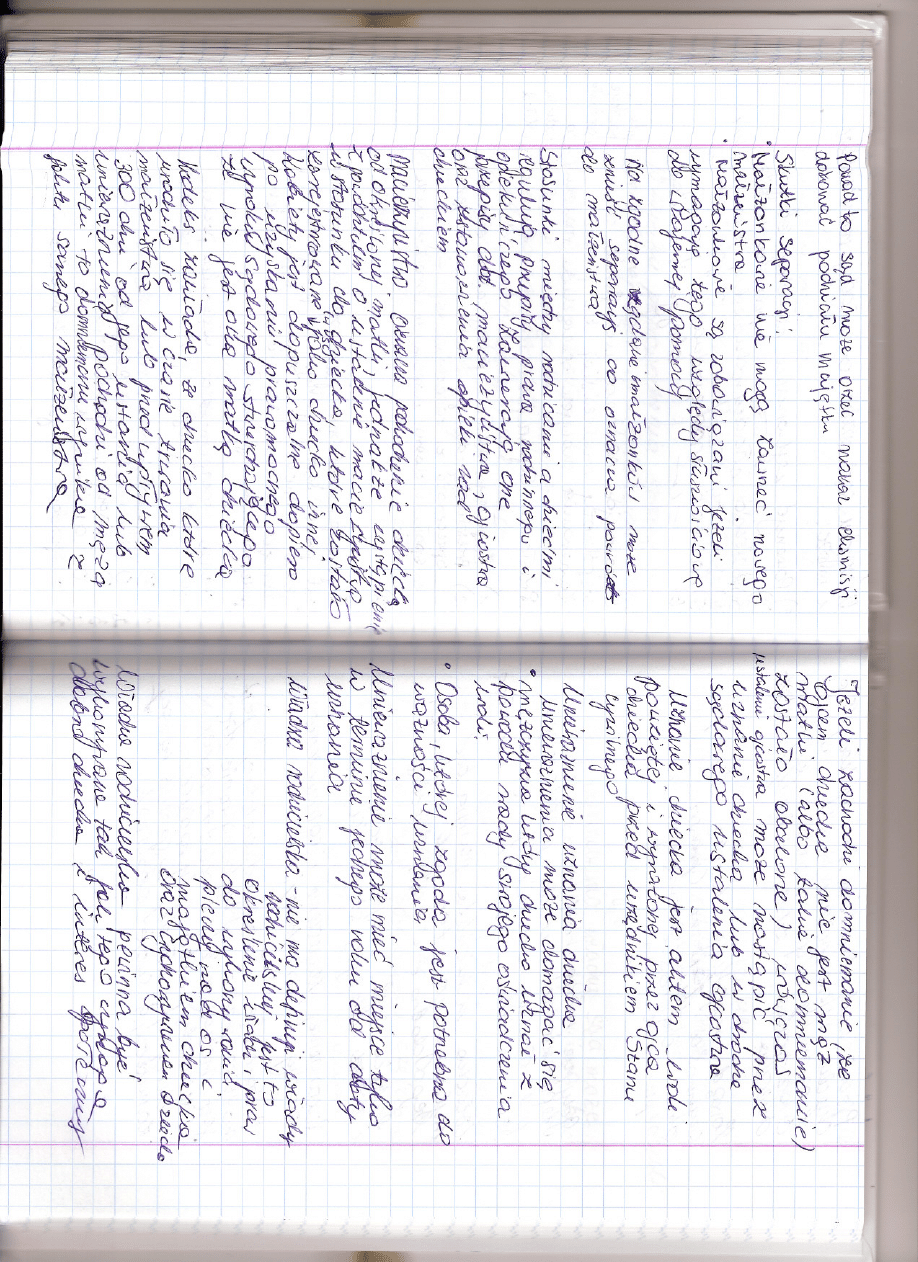 Ponadto sąd może orzec nawet eksmisji
dokonać podziału majątku
Skutki separacji:
• Małżonkowie nie mogą zawrzeć nowego
małżeństwa
• małżonkowie są zobowiązani jeżeli
wymagają tego względy słuszności
do wzajemnej pomocy
Na zgodne żądanie małżonków może
znieść separację co oznacza powrót
do małżeństwa
Stosunki między rodzicami a dziećmi
regulują przepisy prawa rodzinnego i
opiekuńczego. Zawierają one
przepisy dot. macierzyństwa, ojcostwa
oraz ustanowienia opieki nad
dzieckiem
Macierzyństwo oznacza pochodzenie dziecka
od określonej matki, jednakże wystąpienie
z powództwem o ustalenie macierzyństwa
w stosunku do dziecka, które zostało
zarejestrowane w USC jako dziecko innej
kobiety jest dopuszczalne dopiero
po uzyskaniu prawomocnego
wyroku sądowego stwierdzającego
że nie jest ona matką dziecka
Kodeks zakłada, że dziecko które
urodziło się w czasie trwania
małżeństwa lub przed upływem
300 dni od jego ustania lub
unieważnienia pochodzi od męża
matki to domniemanie wynika z
faktu samego małżeństwa
Jeżeli zachodzi domniemanie (że
ojcem dziecka nie jest mąż
matki (albo takie domniemanie)
zostało obalone) wówczas
ustalenie ojcostwa może nastąpić przez
uznanie dziecka lub w drodze
sądowego ustalenia ojcostwa
Uznanie dziecka jest aktem woli
powziętej i wyrażonej przez ojca
dziecka przed urzędnikiem stanu
cywilnego
Unieważnienie uznania dziecka
Unieważnienia może domagać się
• mężczyzna który dziecko uznał z
powodu wady swojego oświadczenia
woli.
• Osoba, której zgoda jest potrzebna do
ważności uznania
Unieważnienie może mieć miejsce tylko
w terminie jednego roku od daty
uznania
Władza rodzicielska - nie ma definicji władzy
rodzicielskiej jest to
określenie praw
do wykonywania
pieczy nad os i
majątkiem dziecka
oraz wychowaniem dziecka
Władza rodzicielska powinna być
wykonywana tak jak tego wymaga
dobro dziecka i interes społeczny